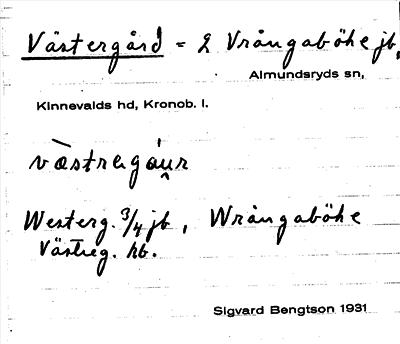 Västergård = 2 Vrångaböke jb,
Almundsryds sn,
Kinnevalds hd, Kronob. l.
västrəgáu̯r
Westerg. 3/4 jb, Wrångaböke
Västreg. hb.
Sigvard Bengtson 1931